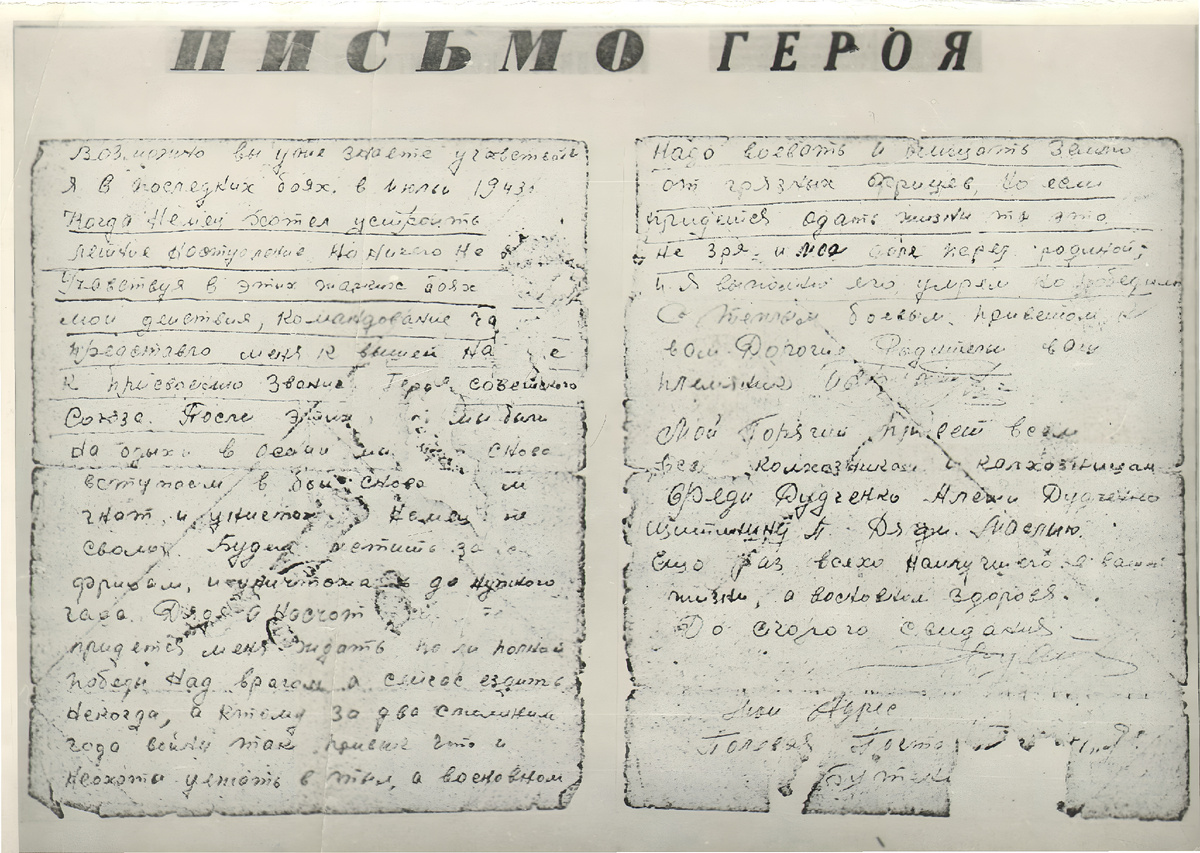 ПИСЬМО ГЕРОЯ
Возможно вы уже знаете учавствовал
Я в последних боях. в июли 1943г
Когда Немец хотел устроить
летние наступление. На ничего не
Учавствуя в этих жарких боях
мои действия, командование ча
представло меня к вышей На е
к присвоению Звание Героя советского
Союза. После этих мы были
На одыхи в осени мы снова
вступаем в бои снова
гнат и уништож Немец не
сволоч. Будем мстить за
фрицам, и уничтожа ь до нужного
гада. Дядя а насчот
придется меня ждать коли полной
победы Над врагом а сейчас ездить
Некогда, а ктому за два сталиным
года войны так привык что и
неохота уежать в тыл, а восновном
Надо воевать и очищать Землю
от грязных Фрицев, Но если
придется одать жизнь то это
не зря. и мой долг перед родиной,
и Я выполню его умрем, но победим
С теплым боевым приветом к
вам Дорогие Родители ваш
племяник
Мой Горячий привет всем
без колхозникам и колхозницам
Феди Дудченко Алеши Дудченко
П. Дяди
Ещо раз всяхо наилучшего в вашей
жизни, а восновном здоровя.
До скорого свидания
мой Адрес
Полевая Почта
Бутел